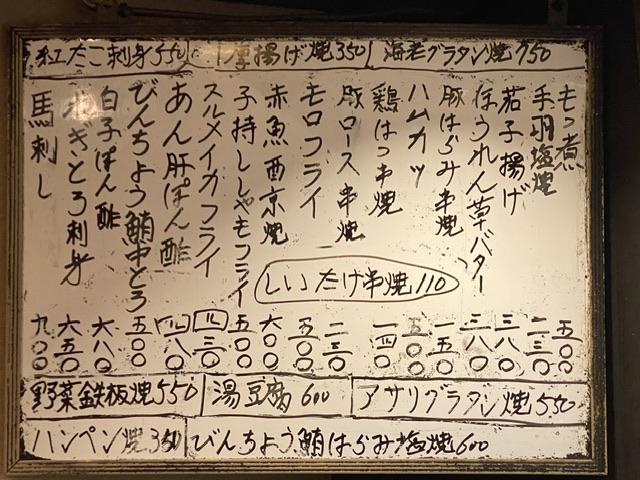 紅たこ刺身550
厚揚げ焼350
海老グラタン焼750
もつ煮 五〇〇
手羽塩焼 二三〇
茄子揚げ 三八〇
ほうれん草バター 三八〇
豚はらみ串焼 一五〇
ハムカツ 五〇〇
鶏はつ串焼 一四〇
豚ロース串焼 二三〇
モロフライ 五〇〇
赤魚西京焼 六〇〇
子持ししゃもフライ 五〇〇
スルメイカフライ 四三〇
あん肝ぽん酢 四八〇
びんちょう鮪中とろ 五〇〇
白子ぽん酢 六八〇
ねぎとろ刺身 六五〇
馬刺し 九〇〇
しいたけ串焼110
野菜鉄板焼550
湯豆腐600
アサリグラタン焼550
ハンペン焼350
びんちょう鮪はらみ塩焼600